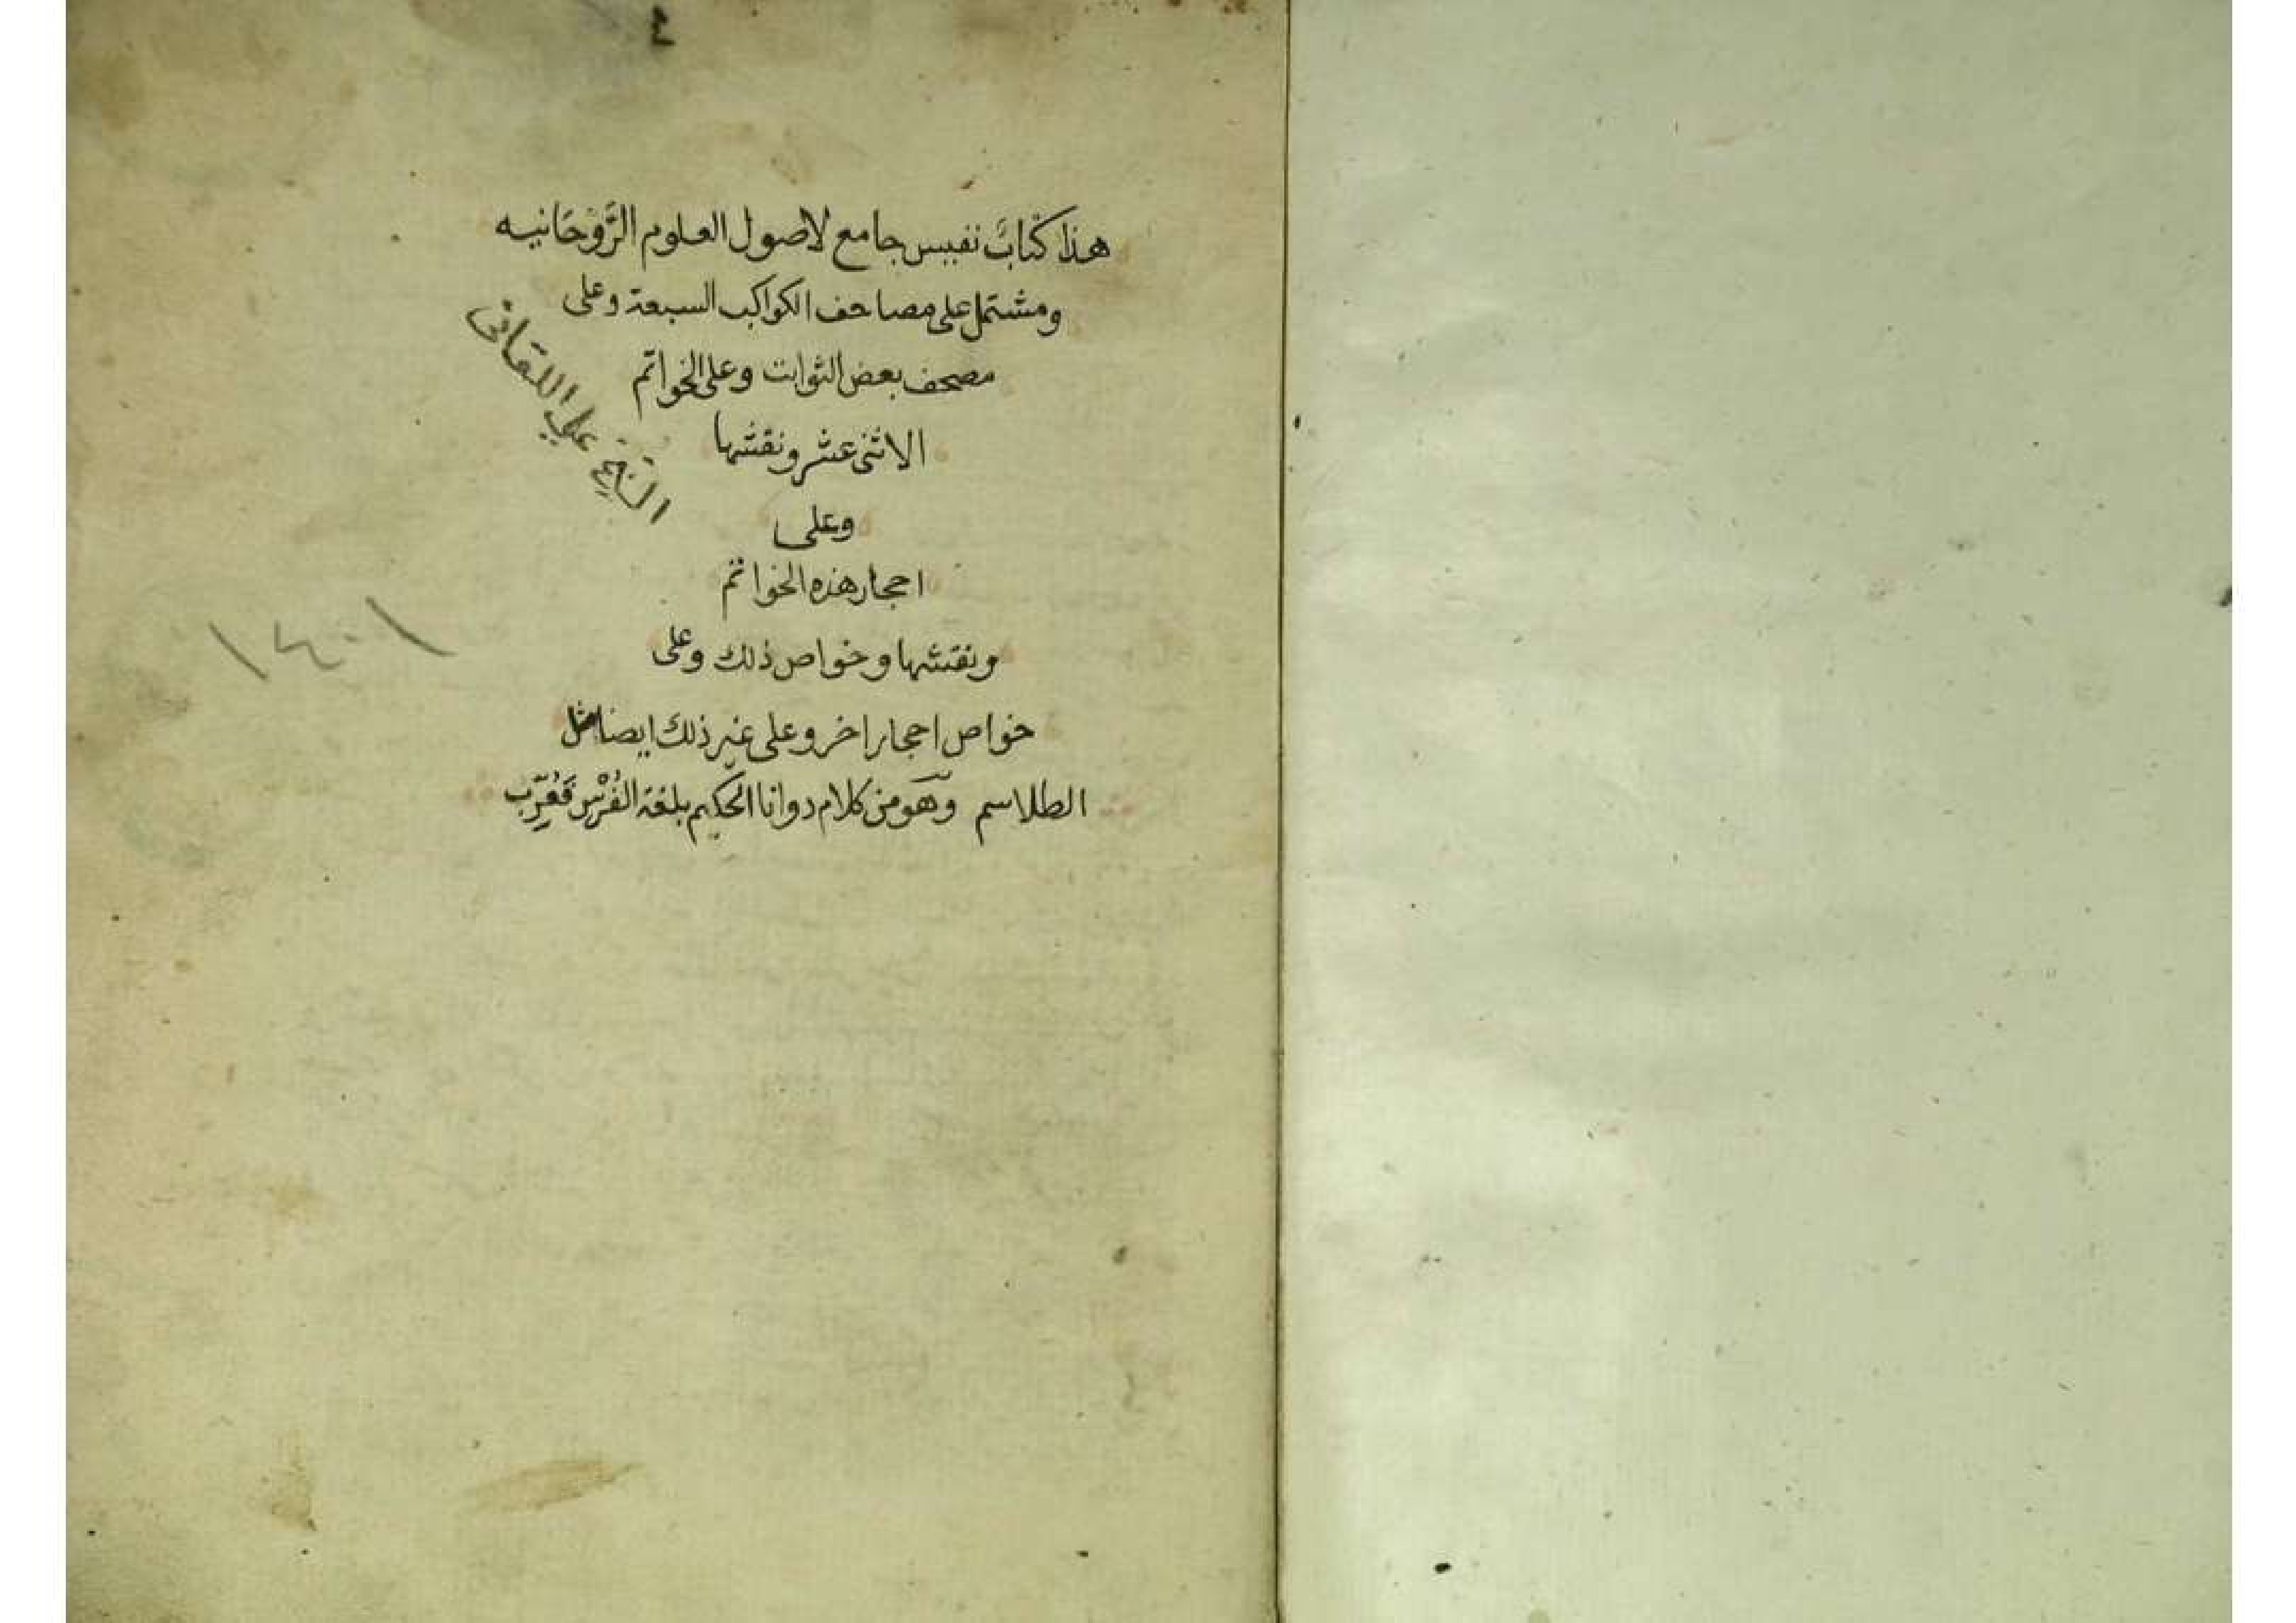 ٤
هذا كتابٌ نفيس جامع لاصول العلوم الرَّوْحَانيه
ومشتمل على مصاحف الكواكب السبعة وعلى
مصحف بعض الثوابت وعلى الخواتم
الاثنى عشر ونقشها
وعلى
احجار هذه الخواتم
ونقشها وخواص ذلك وعلى
خواص احجار اخر وعلى غير ذلك ايضا مثل
الطلاسم وهو من كلام دوانا الحكيم بلغة الفُرْس فَعُرِّب
على اللقانى
١٤٠١